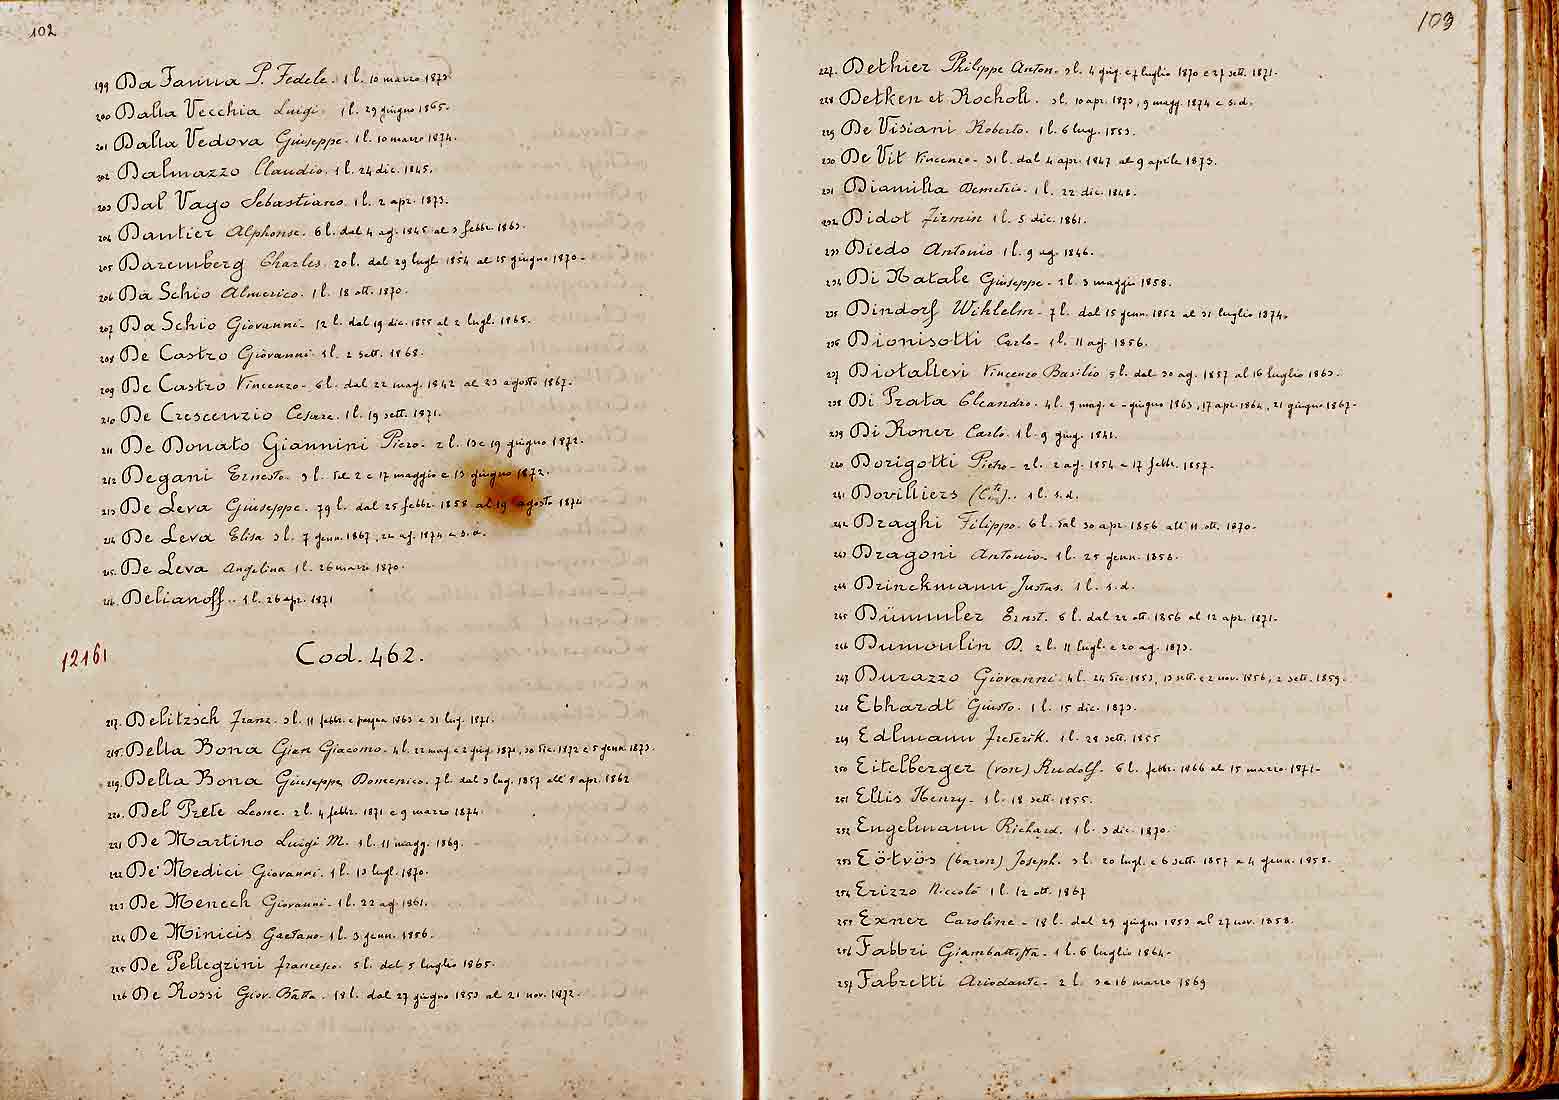 102
199 Da Fanna P. Fedele. 1 l. 10 marzo 1873.
200 Dalla Vecchia Luigi. 1 l. 29 giugno 1865.
201 Dalla Vedova Giuseppe. 1 l. 10 marzo 1874.
202 Dalmazzo Claudio. 1 l. 24 dic. 1845.
203 Dal Vago Sebastiano. 1 l. 2 apr. 1873.
204 Dantier Alphonse. 6 l. dal 4 ag. 1845 al 3 febbr. 1863.
205 Daremberg Charles. 20 l. dal 29 lugl. 1854 al 15 giugno 1870.
206 Da Schio Almerico. 1 l. 18 ott. 1870.
207 Da Schio Giovanni. 12 l. dal 19 dic. 1855 al 2 lugl. 1865.
208 De Castro Giovanni. 1 l. 2 sett. 1868.
209 De Castro Vincenzo. 6 l. dal 22 mag. 1842 al 23 agosto 1867.
210 De Crescenzio Cesare. 1 l. 19 sett. 1871.
211 De Donato Giannini Piero. 2 l. 13 e 19 giugno 1872.
212 Degani Ernesto. 3 l. del 2 e 17 maggio e 13 giugno 1872.
213 De Leva Giuseppe. 79 l. dal 25 febbr. 1858 al 19 agosto 1874
214 De Leva Elisa 3 l. 7 genn. 1867, 24 ag. 1874 e s.d.
215 De Leva Angelina 1 l. 26 marzo 1870.
216 Delianoff. 1 l. 26 apr. 1871
12161 Cod. 462.
217. Delitzsch Franz. 3 l. 11 febbr. e giugno 1863 e 31 lug. 1871.
218. Della Bona Gian Giacomo. 4 l. 22 mag. e 2 giug. 1871, 30 dic. 1872 e 5 genn. 1873.
219. Della Bona Giuseppe Domenico. 7 l. dal 3 lug. 1857 all' 8 apr. 1862
220. Del Prete Leone. 2 l. 4 febbr. 1871 e 9 marzo 1874.
221 De Martino Luigi M. 1 l. 11 magg. 1869.
222 De' Medici Giovanni. 1 l. 13 lugl. 1870.
223 De Menech Giovanni. 1 l. 22 ag. 1861.
224 De Minicis Gaetano. 1 l. 3 genn. 1856.
225 De Pellegrini Francesco. 5 l. del 5 luglio 1865.
226 De Rossi Giov. Batta. 18 l. dal 27 giugno 1853 al 21 nov. 1872.
103
227. Dethier Philippe Anton. 3 l. 4 giug. e 7 luglio 1870 e 27 sett. 1871.
228 Detken et Rocholl. 3 l. 10 apr. 1873, 9 magg. 1874 e s.d.
229 De Visiani Roberto. 1 l. 6 lug. 1853.
230 De Vit Vincenzo. 31 l. dal 4 apr. 1847 al 9 aprile 1873.
231 Diamilla Demetrio. 1 l. 22 dic. 1848.
232 Didot Firmin 1 l. 5 dic. 1861.
233 Diedo Antonio 1 l. 9 ag. 1846.
234 Di Natale Giuseppe. 1 l. 3 maggio 1858.
235 Dindorf Wihlelm. 7 l. dal 15 genn. 1852 al 31 luglio 1874.
236 Dionisotti Carlo. 1 l. 11 ag. 1856.
237 Diotallevi Vincenzo Basilio 5 l. dal 30 ag. 1857 al 16 luglio 1863.
238 Di Prata Eleandro. 4 l. 9 mag. e - giugno 1863, 17 apr. 1864, 21 giugno 1867.
239 Di Roner Carlo. 1 l. 9 giug. 1841.
240 Dorigotti Pietro. 2 l. 2 ag. 1854 e 17 febbr. 1857.
241 Dovilliers (Cte). 1 l. s.d.
242 Draghi Filippo. 6 l. dal 30 apr. 1856 all' 11 ott. 1870.
243 Dragoni Antonio. 1 l. 25 genn. 1858.
244 Drinckmann Justus. 1 l. s.d.
245 Dümmler Ernst. 6 l. dal 22 ott. 1856 al 12 apr. 1871.
246 Dumoulin D. 2 l. 11 lugl. e 20 ag. 1873.
247 Durazzo Giovanni. 4 l. 24 dic. 1853, 13 sett. e 2 nov. 1856, 2 sett. 1859.
248 Ebhardt Giusto. 1 l. 15 dic. 1873.
249 Edlmann Frederik. 1 l. 28 sett. 1855
250 Eitelberger (von) Rudolf. 6 l. febbr. 1866 al 15 marzo 1871.
251 Ellis Henry. 1 l. 18 sett. 1855.
252 Engelmann Richard. 1 l. 3 dic. 1870.
253 Eötvös (baron) Joseph. 3 l. 20 lugl. e 6 sett. 1857 e 4 genn. 1858.
254 Erizzo Niccolò 1 l. 12 ott. 1867
255 Exner Caroline. 18 l. dal 29 giugno 1853 al 27 nov. 1858.
256 Fabbri Giambattista. 1 l. 6 luglio 1864.
257 Fabretti Ariodante. 2 l. 3 e 16 marzo 1869